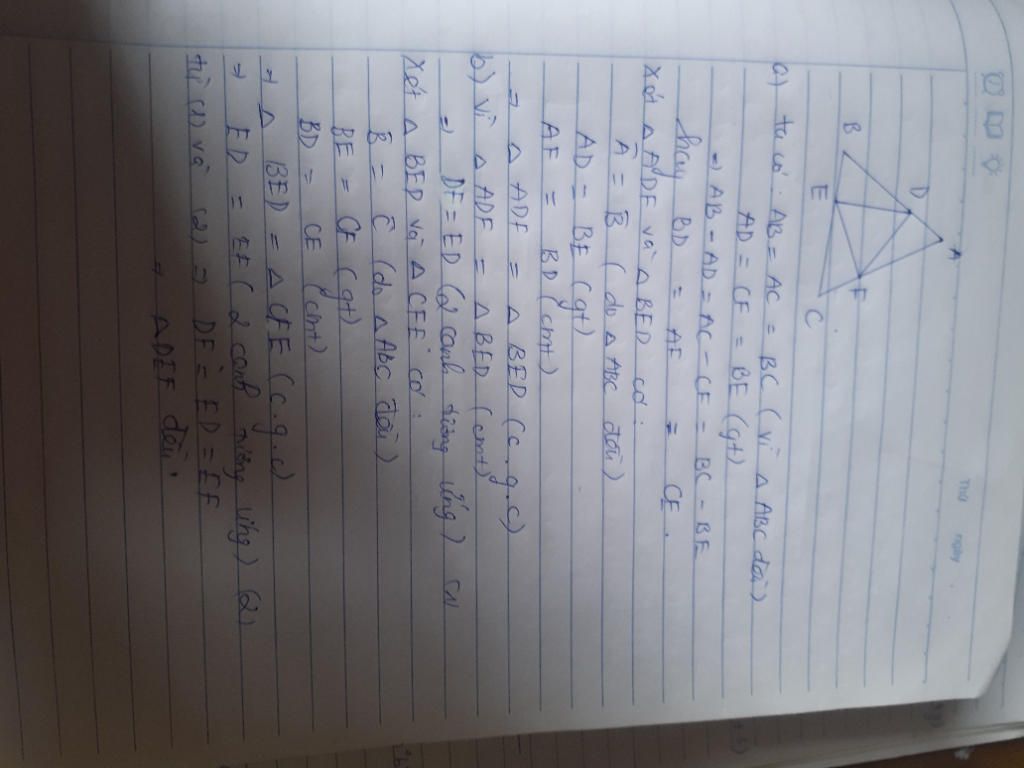 Thứ ngày
A
D
B
F
E
C
a) ta có: AB = AC = BC (vì Δ ABC đều)
AD = CF = BE (gt)
⇒ AB - AD = AC - CF = BC - BE
hay BD = AF = CE.
Xét Δ ADF và Δ BED có:
Â = B̂ (do Δ ABC đều)
AD = BE (gt)
AF = BD (cmt)
⇒ Δ ADF = Δ BED (c.g.c)
b) Vì Δ ADF = Δ BED (cmt)
⇒ DF = ED (2 cạnh tương ứng) (1)
Xét Δ BED và Δ CFE có:
B̂ = Ĉ (do Δ ABC đều)
BE = CF (gt)
BD = CE (cmt)
⇒ Δ BED = Δ CFE (c.g.c)
⇒ ED = EF (2 cạnh tương ứng) (2)
từ (1) và (2) ⇒ DF = ED = EF
⇒ Δ DEF đều.